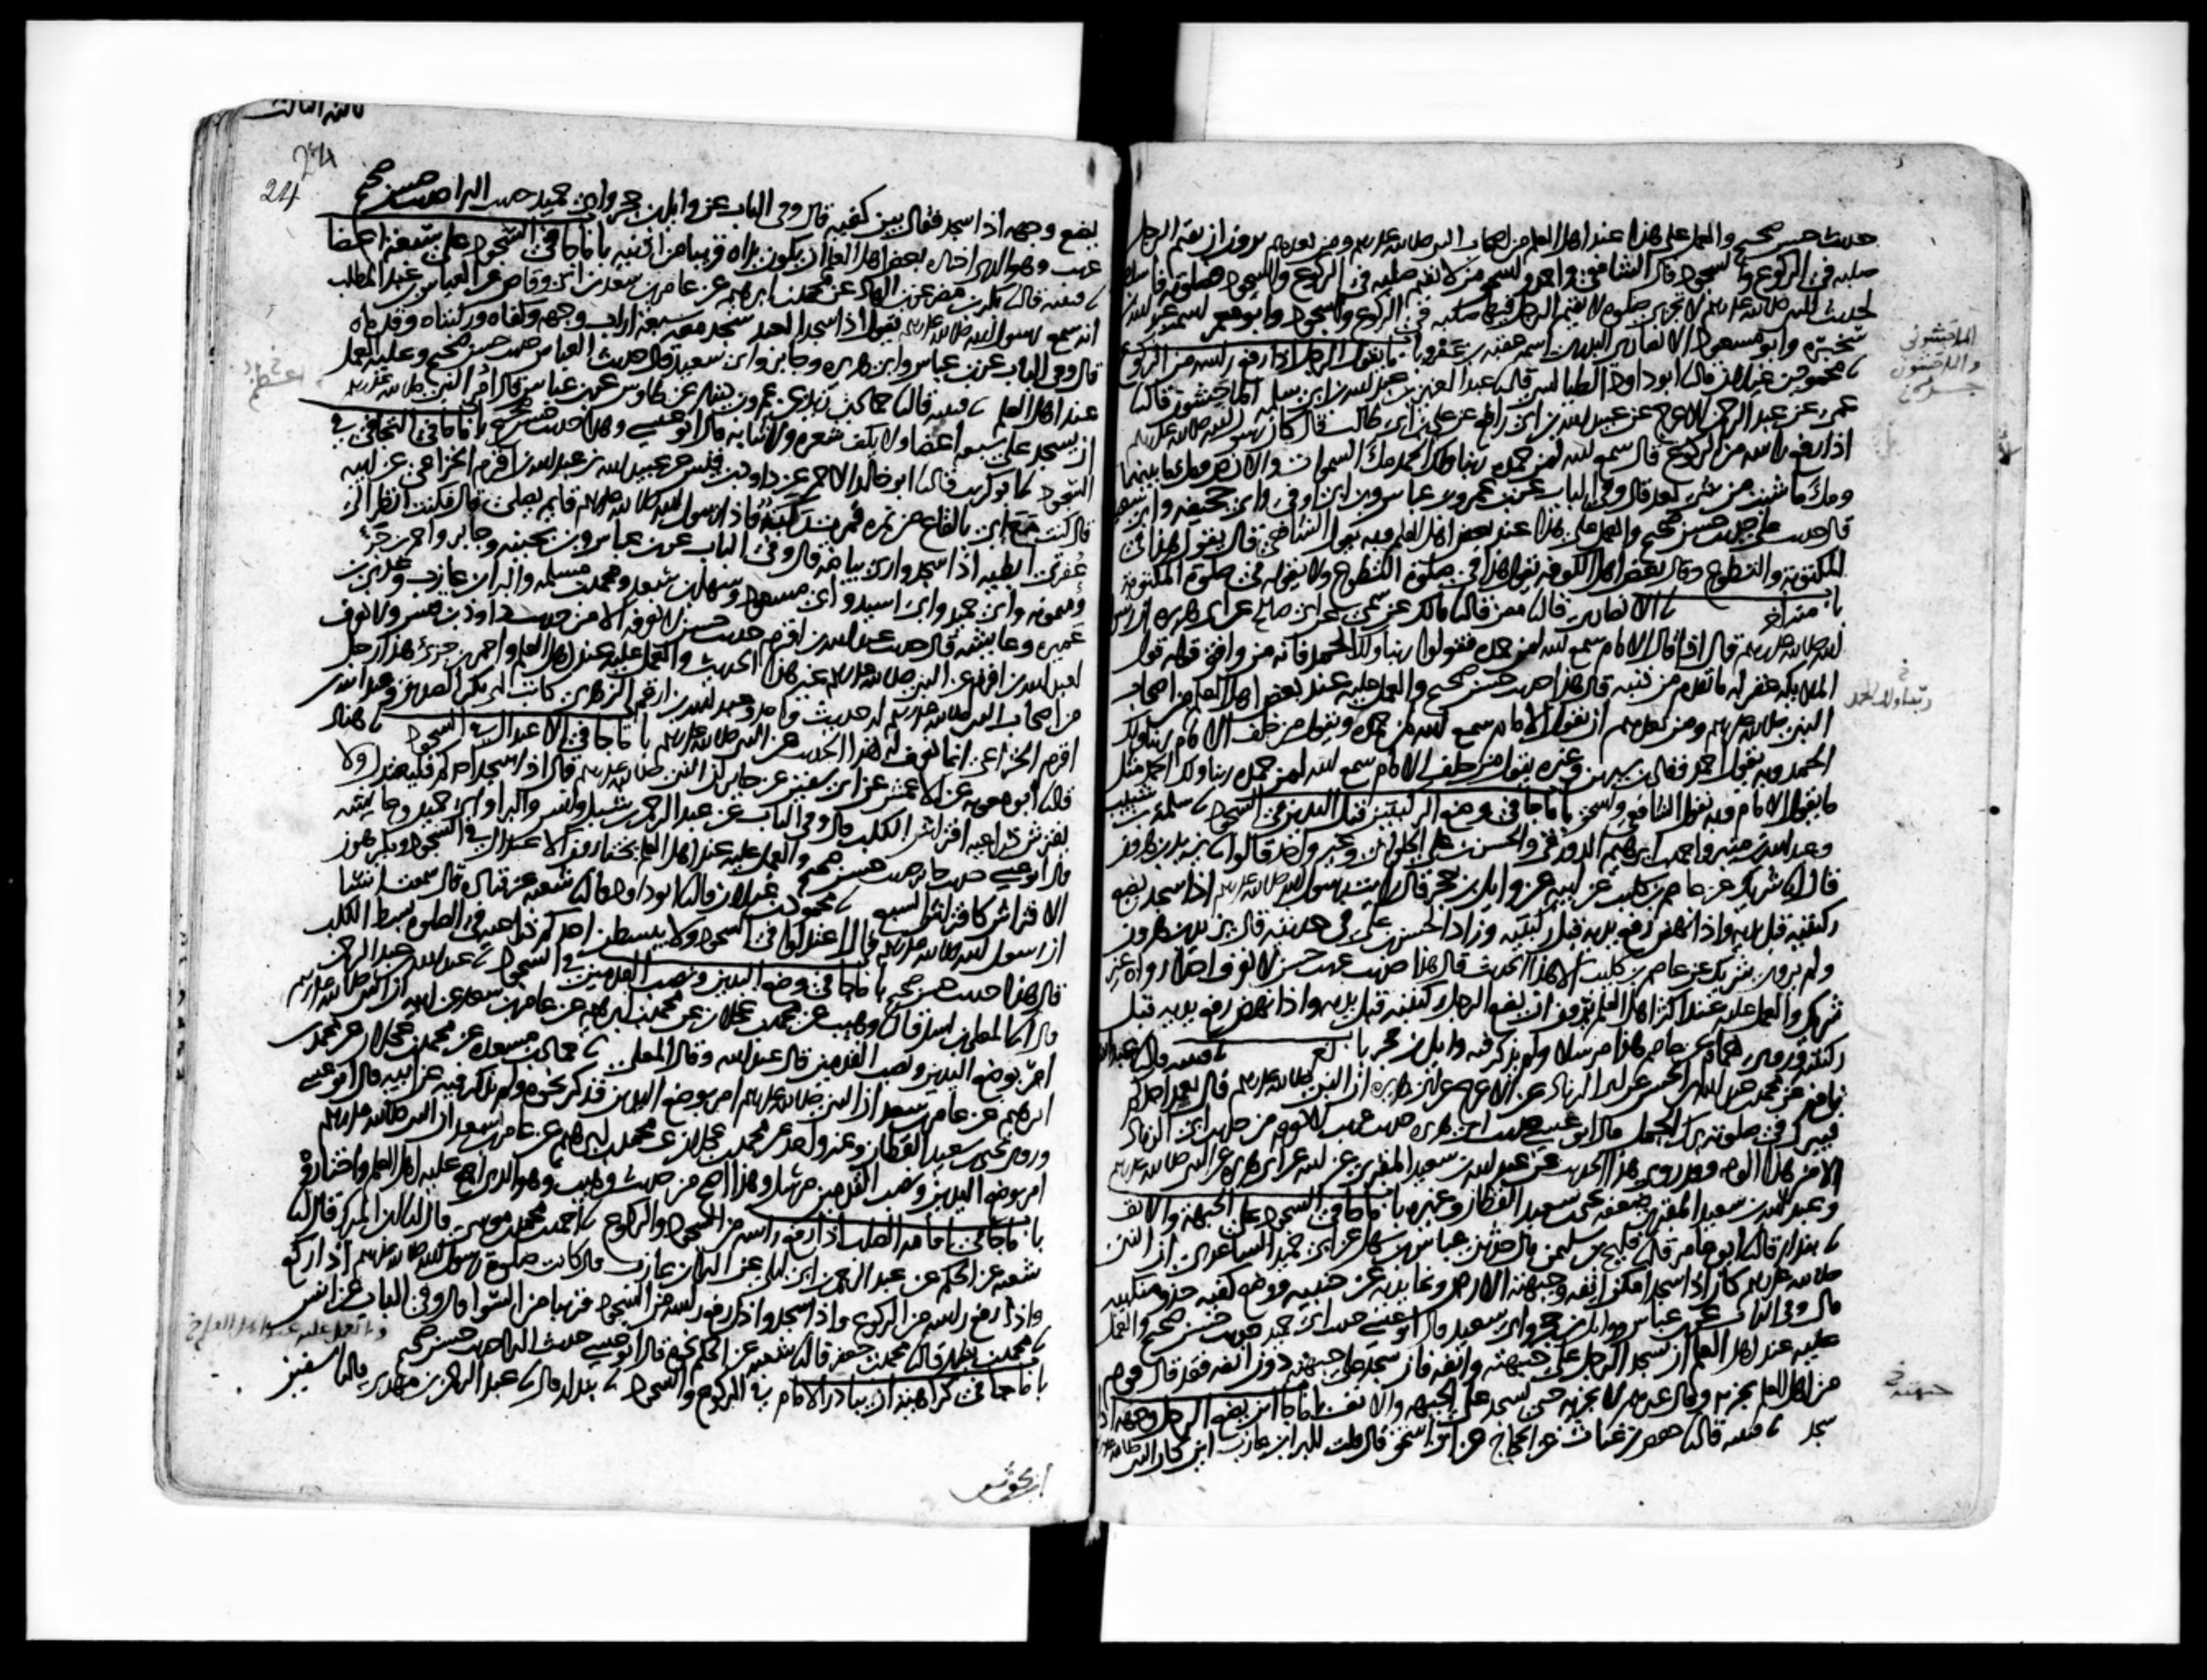 حديث حسن صحيح والعمل على هذا عند اهل العلم من اصحاب النبي صلى الله عليه وسلم ومن بعدهم يرون ان يقيم الرجل
صلبه في الركوع والسجود وقال الشافعي واحمد واسحق من لا يقيم صلبه في الركوع والسجود فصلوته فاسدة
لحديث النبي صلى الله عليه وسلم لا تجزى صلوة لا يقيم الرجل فيها صلبه في الركوع والسجود وابو معمر اسمه عبد الله
بن سخبرة وابو مسعود الانصاري البدري اسمه عقبة بن عمرو باب ما يقول الرجل اذا رفع راسه من الركوع
نا محمود بن غيلان قال نا ابو داود الطيالسي قال نا عبد العزيز بن عبد الله بن ابي سلمة الماجشون قال نا
عمى عن عبد الرحمن الاعرج عن عبيد الله بن ابي رافع عن علي بن ابي طالب قال كان رسول الله صلى الله عليه وسلم
اذا رفع راسه من الركوع قال سمع الله لمن حمده ربنا ولك الحمد ملء السموات والارض وملء ما بينهما
وملء ما شئت من شئ بعد قال وفي الباب عن ابن عمر وابن عباس وابن ابي اوفى وابي جحيفة وابي سعيد
قال حديث علي حديث حسن صحيح والعمل على هذا عند بعض اهل العلم وبه يقول الشافعي قال يقول هذا في
المكتوبة والتطوع وقال بعض اهل الكوفة يقول هذا في صلوة التطوع ولا يقوله في صلوة المكتوبة
باب منه اخر نا الانصاري قال نا معن قال نا مالك عن سمي عن ابي صالح عن ابي هريرة ان رسول
الله صلى الله عليه وسلم قال اذا قال الامام سمع الله لمن حمده فقولوا ربنا ولك الحمد فانه من وافق قوله قول
الملائكة غفر له ما تقدم من ذنبه قال هذا حديث حسن صحيح والعمل عليه عند بعض اهل العلم من اصحاب
النبي صلى الله عليه وسلم ومن بعدهم ان يقول الامام سمع الله لمن حمده ويقول من خلف الامام ربنا ولك
الحمد وبه يقول احمد وقال ابن سيرين وغيره يقول من خلف الامام سمع الله لمن حمده ربنا ولك الحمد مثل
ما يقول الامام وبه يقول الشافعي واسحق باب ما جا في وضع الركبتين قبل اليدين في السجود نا سلمة بن شبيب
وعبد الله بن منير واحمد بن ابرهيم الدورقي والحسن بن علي الحلواني وغير واحد قالوا نا يزيد بن هرون
قال انا شريك عن عاصم بن كليب عن ابيه عن وايل بن حجر قال رايت رسول الله صلى الله عليه وسلم اذا سجد يضع
ركبتيه قبل يديه واذا نهض رفع يديه قبل ركبتيه وزاد الحسن بن علي في حديثه قال يزيد بن هرون
ولم يرو شريك عن عاصم بن كليب الا هذا الحديث قال هذا حديث غريب حسن لا نعرف احدا رواه غير
شريك والعمل عليه عند اكثر اهل العلم يرون ان يضع الرجل ركبتيه قبل يديه واذا نهض رفع يديه قبل
ركبتيه وروى همام عن عاصم هذا مرسلا ولم يذكر فيه وايل بن حجر باب اخر نا قتيبة قال نا عبد الله
بن نافع عن محمد بن عبد الله بن الحسن عن ابي الزناد عن الاعرج عن ابي هريرة ان النبي صلى الله عليه وسلم قال يعمد احدكم
فيبرك في صلوته برك الجمل قال ابو عيسى حديث ابي هريرة حديث غريب لا نعرفه من حديث ابي الزناد
الا من هذا الوجه وقد روى هذا الحديث عن عبد الله بن سعيد المقبري عن ابيه عن ابي هريرة عن النبي صلى الله عليه وسلم
وعبد الله بن سعيد المقبري ضعفه يحيى بن سعيد القطان وغيره باب ما جا في السجود على الجبهة والانف
نا بندار قال نا ابو عامر قال نا فليح بن سليمن قال حدثني عباس بن سهل عن ابي حميد الساعدي ان النبي
صلى الله عليه وسلم كان اذا سجد امكن انفه وجبهته الارض ونحا يديه عن جنبيه ووضع كفيه حذو منكبيه
قال وفي الباب عن ابن عباس ووايل بن حجر وابي سعيد قال ابو عيسى حديث ابي حميد حديث حسن صحيح والعمل
عليه عند اهل العلم ان يسجد الرجل على جبهته وانفه فان سجد على جبهته دون انفه فقد قال قوم
من اهل العلم يجزيه وقال غيرهم لا يجزيه حتى يسجد على الجبهة والانف باب ما جا اين يضع الرجل وجهه اذا
سجد نا قتيبة قال نا حفص بن غياث عن الحجاج عن ابي اسحق قال قلت للبراء بن عازب اين كان النبي صلى الله عليه وسلم
الماجشوني
ربنا ولك الحمد
جبهته
24
24
يضع وجهه اذا سجد فقال بين كفيه قال وفي الباب عن وايل بن حجر وابي حميد حديث البراء حديث حسن صحيح
غريب وهو الذي اختاره بعض اهل العلم ان يكون يداه قريبا من اذنيه باب ما جا في السجود على سبعة اعضا
نا قتيبة قال نا بكر بن مضر عن ابن الهاد عن محمد بن ابرهيم عن عامر بن سعد بن ابي وقاص عن العباس بن عبد المطلب
انه سمع رسول الله صلى الله عليه وسلم يقول اذا سجد العبد سجد معه سبعة اراب وجهه وكفاه وركبتاه وقدماه
قال وفي الباب عن ابن عباس وابي هريرة وجابر وابي سعيد قال حديث العباس حديث حسن صحيح وعليه العمل
عند اهل العلم نا قتيبة قال نا حماد بن زيد عن عمرو بن دينار عن طاوس عن ابن عباس قال امر النبي صلى الله عليه وسلم
ان يسجد على سبعة اعضا ولا يكف شعره ولا ثيابه قال ابو عيسى وهذا حديث حسن صحيح باب ما جا في التجافي في
السجود نا ابو كريب قال نا ابو خالد الاحمر عن داود بن قيس عن عبيد الله بن عبد الله بن اقرم الخزاعي عن ابيه
قال كنت مع ابي بالقاع من نمرة فمرت ركبة فاذا رسول الله صلى الله عليه وسلم قايم يصلي قال فكنت انظر الى
عفرتي ابطيه اذا سجد وارى بياضه قال وفي الباب عن ابن عباس وابن بحينة وجابر واحمر بن جزء
وميمونة وابي حميد وابي اسيد وابي مسعود وسهل بن سعد ومحمد بن مسلمة والبراء بن عازب وعدي بن
عميرة وعايشة قال حديث عبد الله بن اقرم حديث حسن لا نعرفه الا من حديث داود بن قيس ولا نعرف
لعبد الله بن اقرم عن النبي صلى الله عليه وسلم غير هذا الحديث والعمل عليه عند اهل العلم واحمر بن جزء هذا رجل
من اصحاب النبي صلى الله عليه وسلم له حديث واحد وعبد الله بن ارقم الزهري كاتب ابي بكر الصديق وعبد الله بن
اقرم الخزاعي انما نعرف له هذا الحديث عن النبي صلى الله عليه وسلم باب ما جا في الاعتدال في السجود نا هناد
قال نا ابو معوية عن الاعمش عن ابي سفين عن جابر ان النبي صلى الله عليه وسلم قال اذا سجد احدكم فليعتدل ولا
يفترش ذراعيه افتراش الكلب قال وفي الباب عن عبد الرحمن بن شبل وانس والبراء وابي حميد وعايشة
قال ابو عيسى حديث جابر حديث حسن صحيح والعمل عليه عند اهل العلم يختارون الاعتدال في السجود ويكرهون
الافتراش كافتراش السبع نا محمود بن غيلان قال نا ابو داود قال نا شعبة عن قتادة قال سمعت انسا
ان رسول الله صلى الله عليه وسلم قال اعتدلوا في السجود ولا يبسطن احدكم ذراعيه في الصلوة بسط الكلب
قال هذا حديث حسن صحيح باب ما جا في وضع اليدين ونصب القدمين في السجود نا عبد الله بن عبد الرحمن
قال انا المعلى بن اسد قال نا وهيب عن محمد بن عجلان عن محمد بن ابرهيم عن عامر بن سعد عن ابيه ان النبي صلى الله عليه وسلم
امر بوضع اليدين ونصب القدمين قال عبد الله وقال المعلى نا حماد بن مسعدة عن محمد بن عجلان عن محمد بن
ابرهيم عن عامر بن سعد ان النبي صلى الله عليه وسلم امر بوضع اليدين فذكر نحوه ولم يذكر فيه عن ابيه قال ابو عيسى
وروى يحيى بن سعيد القطان وغير واحد عن محمد بن عجلان عن محمد بن ابرهيم عن عامر بن سعد ان النبي صلى الله عليه وسلم
امر بوضع اليدين ونصب القدمين مرسل وهذا اصح من حديث وهيب وهو الذي اجمع عليه اهل العلم واختاروه
باب ما جا في اقامة الصلب اذا رفع راسه من السجود والركوع نا احمد بن محمد بن موسى قال انا ابن المبارك قال انا
شعبة عن الحكم عن عبد الرحمن بن ابي ليلى عن البراء بن عازب قال كانت صلوة رسول الله صلى الله عليه وسلم اذا ركع
واذا رفع راسه من الركوع واذا سجد واذا رفع راسه من السجود قريبا من السوا قال وفي الباب عن انس
نا محمد بن بشار قال نا محمد بن جعفر قال نا شعبة عن الحكم نحوه قال ابو عيسى حديث البراء حديث حسن صحيح
باب ما جا في كراهية ان يبادر الامام في الركوع والسجود نا بندار قال نا عبد الرحمن بن مهدي قال نا سفين
والعمل عليه عند اهل العلم